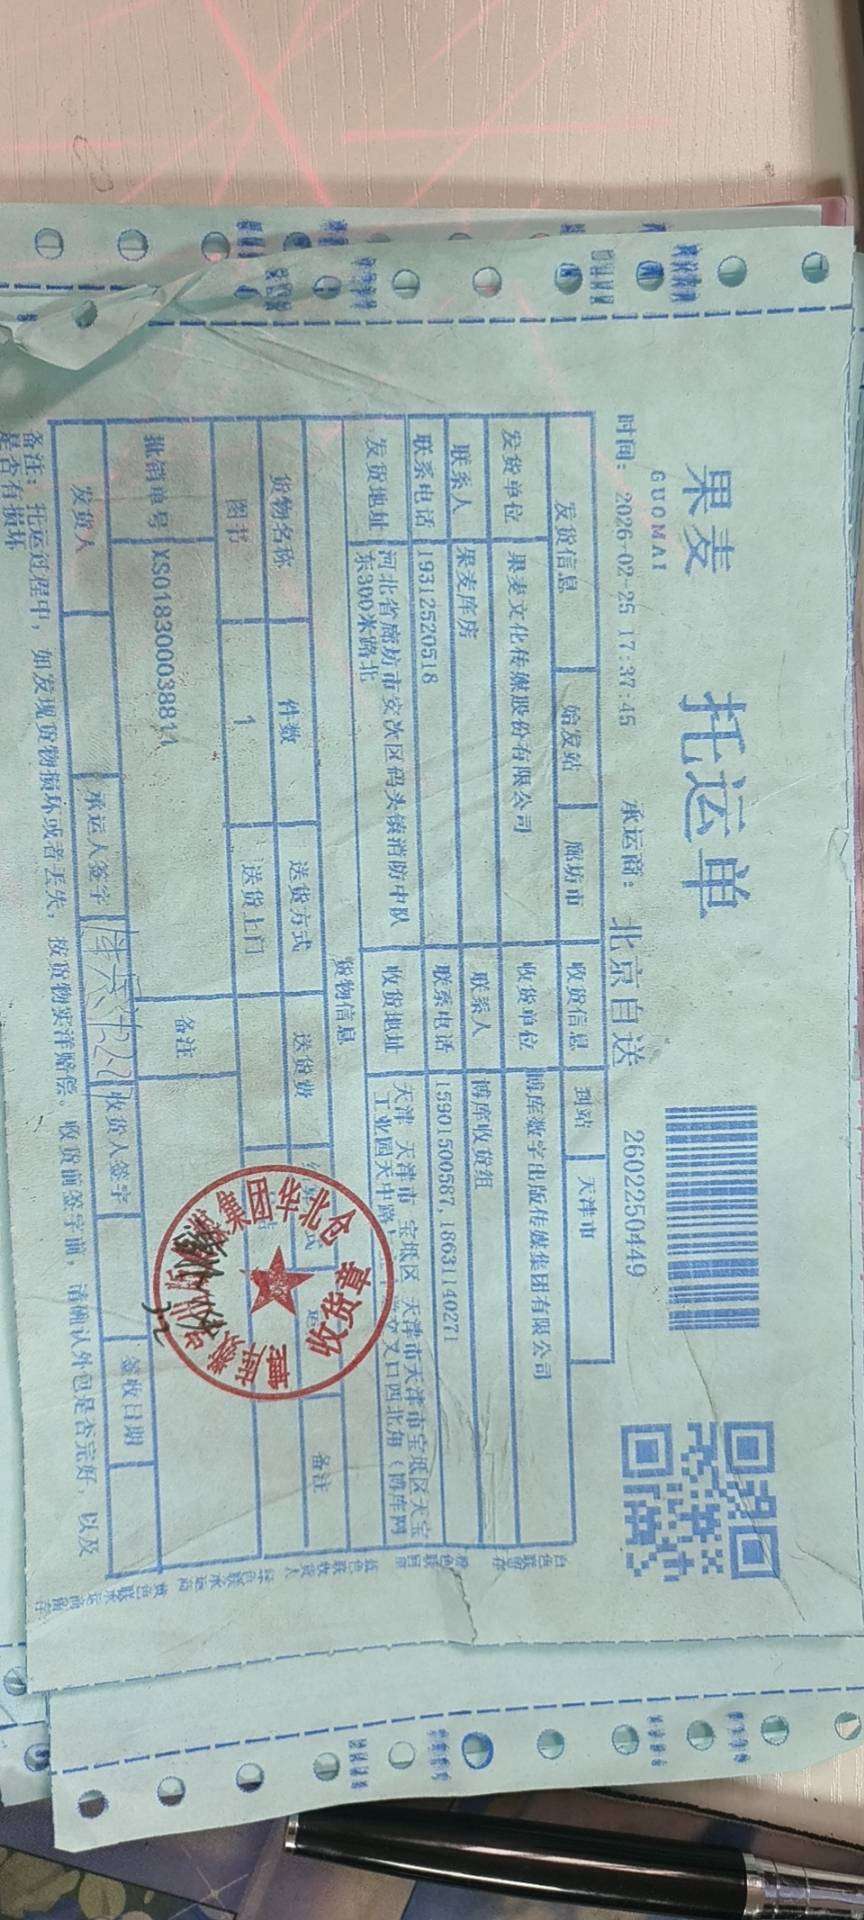 果麦
GUOMAI
托运单
时间：2026-02-25 17:37:45 承运商：北京自送 2602250449
发货信息 始发站 廊坊市 收货信息 到站 天津市
发货单位 果麦文化传媒股份有限公司 收货单位 博库数字出版传媒集团有限公司
联系人 果麦库房 联系人 博库收货组
联系电话 19312520518 联系电话 15901500587,18631140271
发货地址 河北省廊坊市安次区码头镇消防中队东300米路北 收货地址 天津 天津市 宝坻区 天津市天津市宝坻区天宝工业园天中路 交叉口西北角（博库网
货物信息
货物名称 件数 送货方式 送货费 备注
图书 1 送货上门
批销单号 XS018300038814 备注
发货人 承运人签字 收货人签字 签收日期
备注：托运过程中，如发现货物损坏或者丢失，按货物实洋赔偿。收货前签字前，请确认外包是否完好，以及是否有损坏
集团华北仓
收货章
博库数